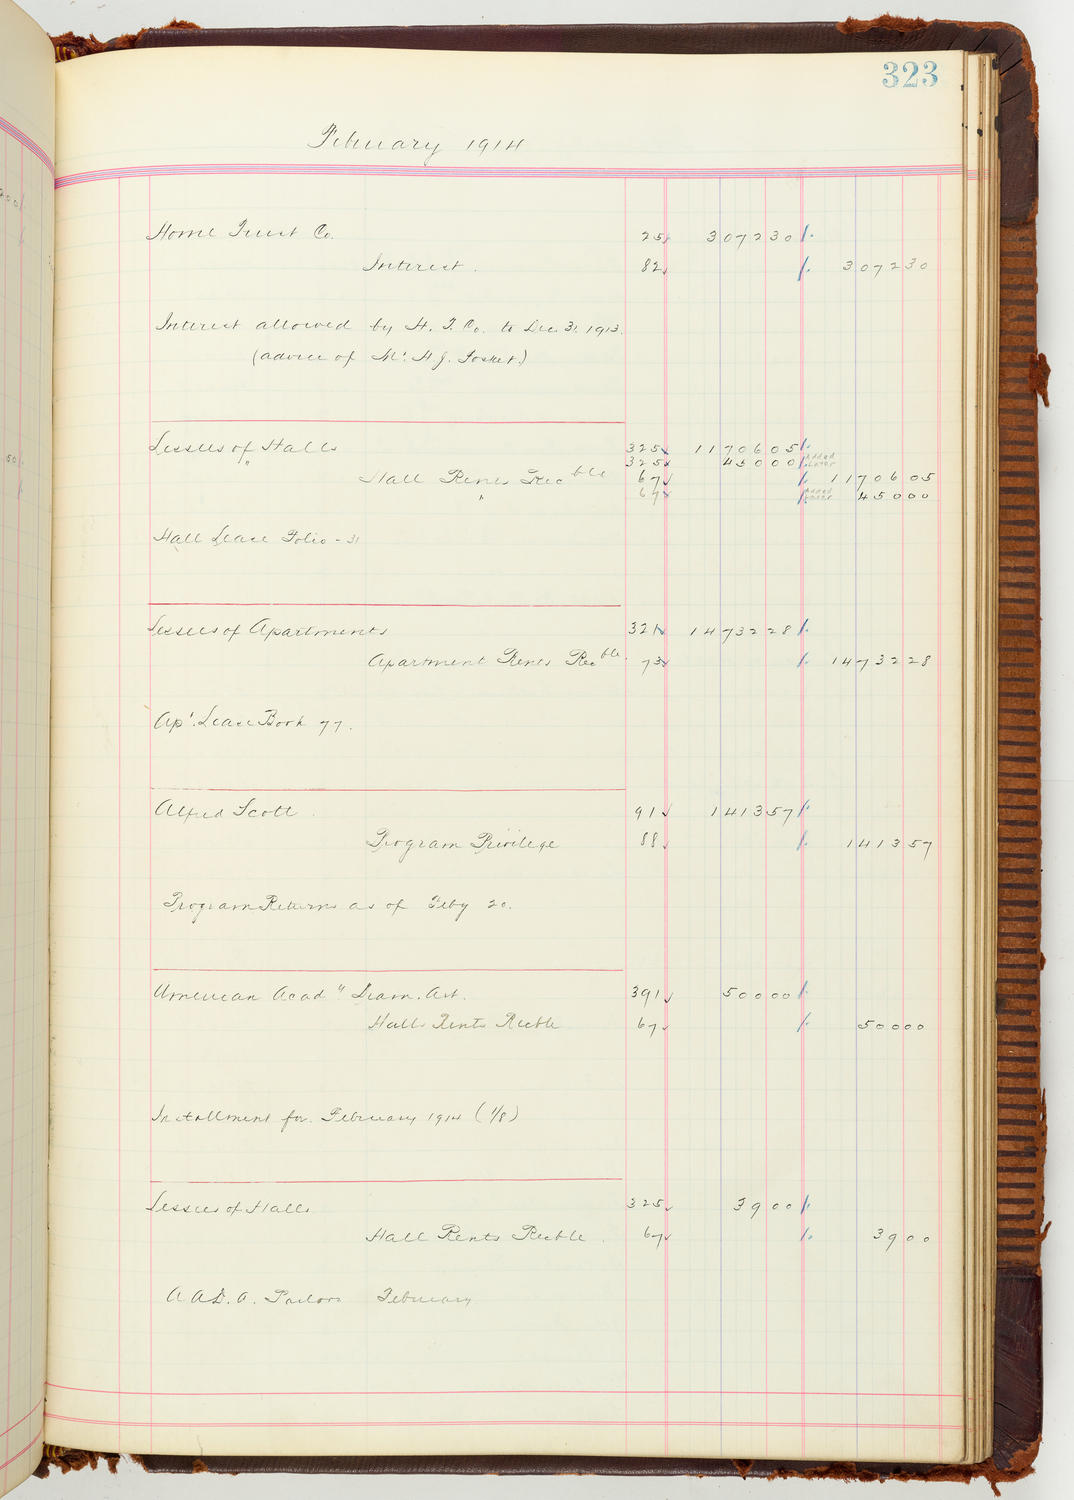 323
February 1914
Home Trust Co. 25 307230
Interest. 82 307230
Interest allowed by H. T. Co. to Dec. 31. 1913.
(advice of Mr. H J.
Lessees of Halls 325 1170605
" 325 45000 Added Later
Hall Rents Recble 67 1170605
" 67 Added Later 45000
Hall Lease Folio - 31
Lessees of Apartments 321 1473228
Apartment Rents Recble. 73 1473228
Apt. Lease Book 77.
Alfred Scott. 91 141357
Program Privilege 88 141357
Program Returns as of Feby 20.
American Acady Dram. Art. 391 50000
Halls Rents Recble 67 50000
Installment for February 1914 (1/8)
Lessees of Halls 325 3900
Hall Rents Recble. 67 3900
A A D. A. Parlors February